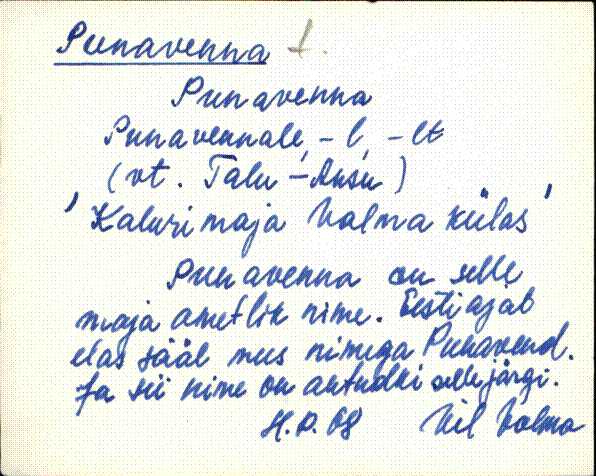 Punavenna 1.
Punavenna
Punavennale, -l, -lt
(vt. Talu-Ansu)
'Kaluri maja Valma külas'
Punavenna on selle
maja ametlik nime. Eesti ajal
elas sääl mees nimega Punavend.
Ja sii nime on antudki selle järgi.
H.P. 68 Vil Valma